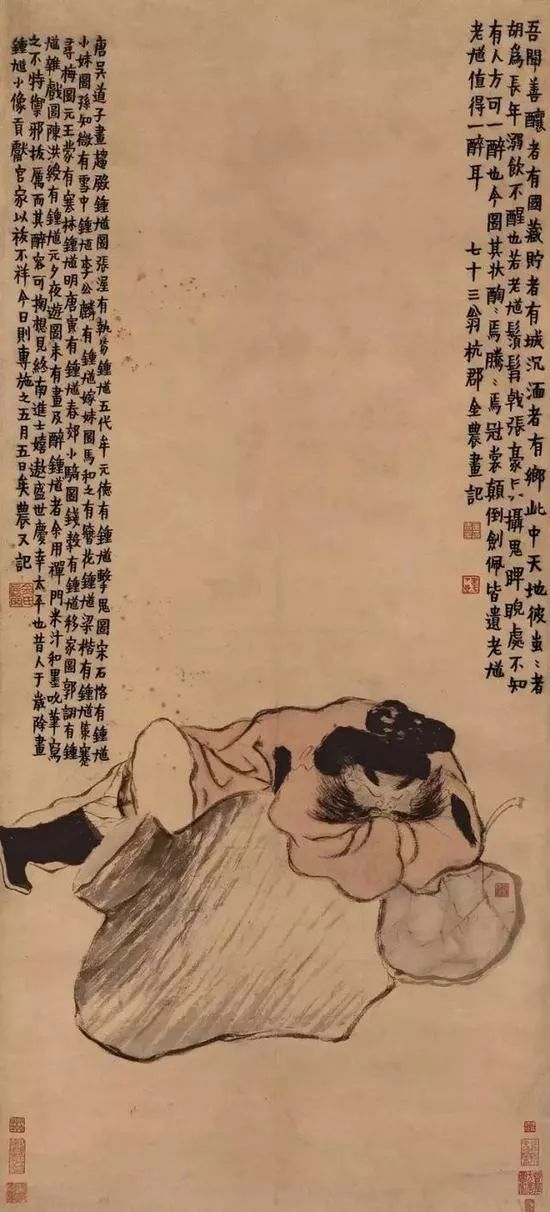 吾聞善釀者有國藏貯者有城沉湎者有鄉此中天地彼蚩〻者
胡為長年溺飲不醒也若老馗鬚髯戟張豪氣攝鬼睥睨處不知
有人方可一醉也今圖其狀醄〻焉騰〻焉冠裳顛倒劍佩皆遺老馗
老馗值得一醉耳 七十三翁杭郡金農畫記
唐吳道子畫趨殿鍾馗圖張渥有執笏鍾馗五代牟元德有鍾馗擊鬼圖宋石恪有鍾馗
小妹圖孫知微有雪中鍾馗李公麟有鍾馗嫁妹圖馬和之有簪花鍾馗梁楷有鍾馗策蹇
尋梅圖元王蒙有寒林鍾馗明唐寅有鍾馗春郊小騎圖錢穀有鍾馗移家圖郭詡有鍾
馗雜戲圖陳洪綬有鍾馗元夕夜遊圖未有畫及醉鍾馗者余用禪門米汁和墨吮筆寫
之不特禦邪拔厲而其醉容可掬想見終南進士嬉遨盛世慶幸太平也昔人于歲除畫
鍾馗小像貢獻官家以祓不祥今日則專施之五月五日矣農又記